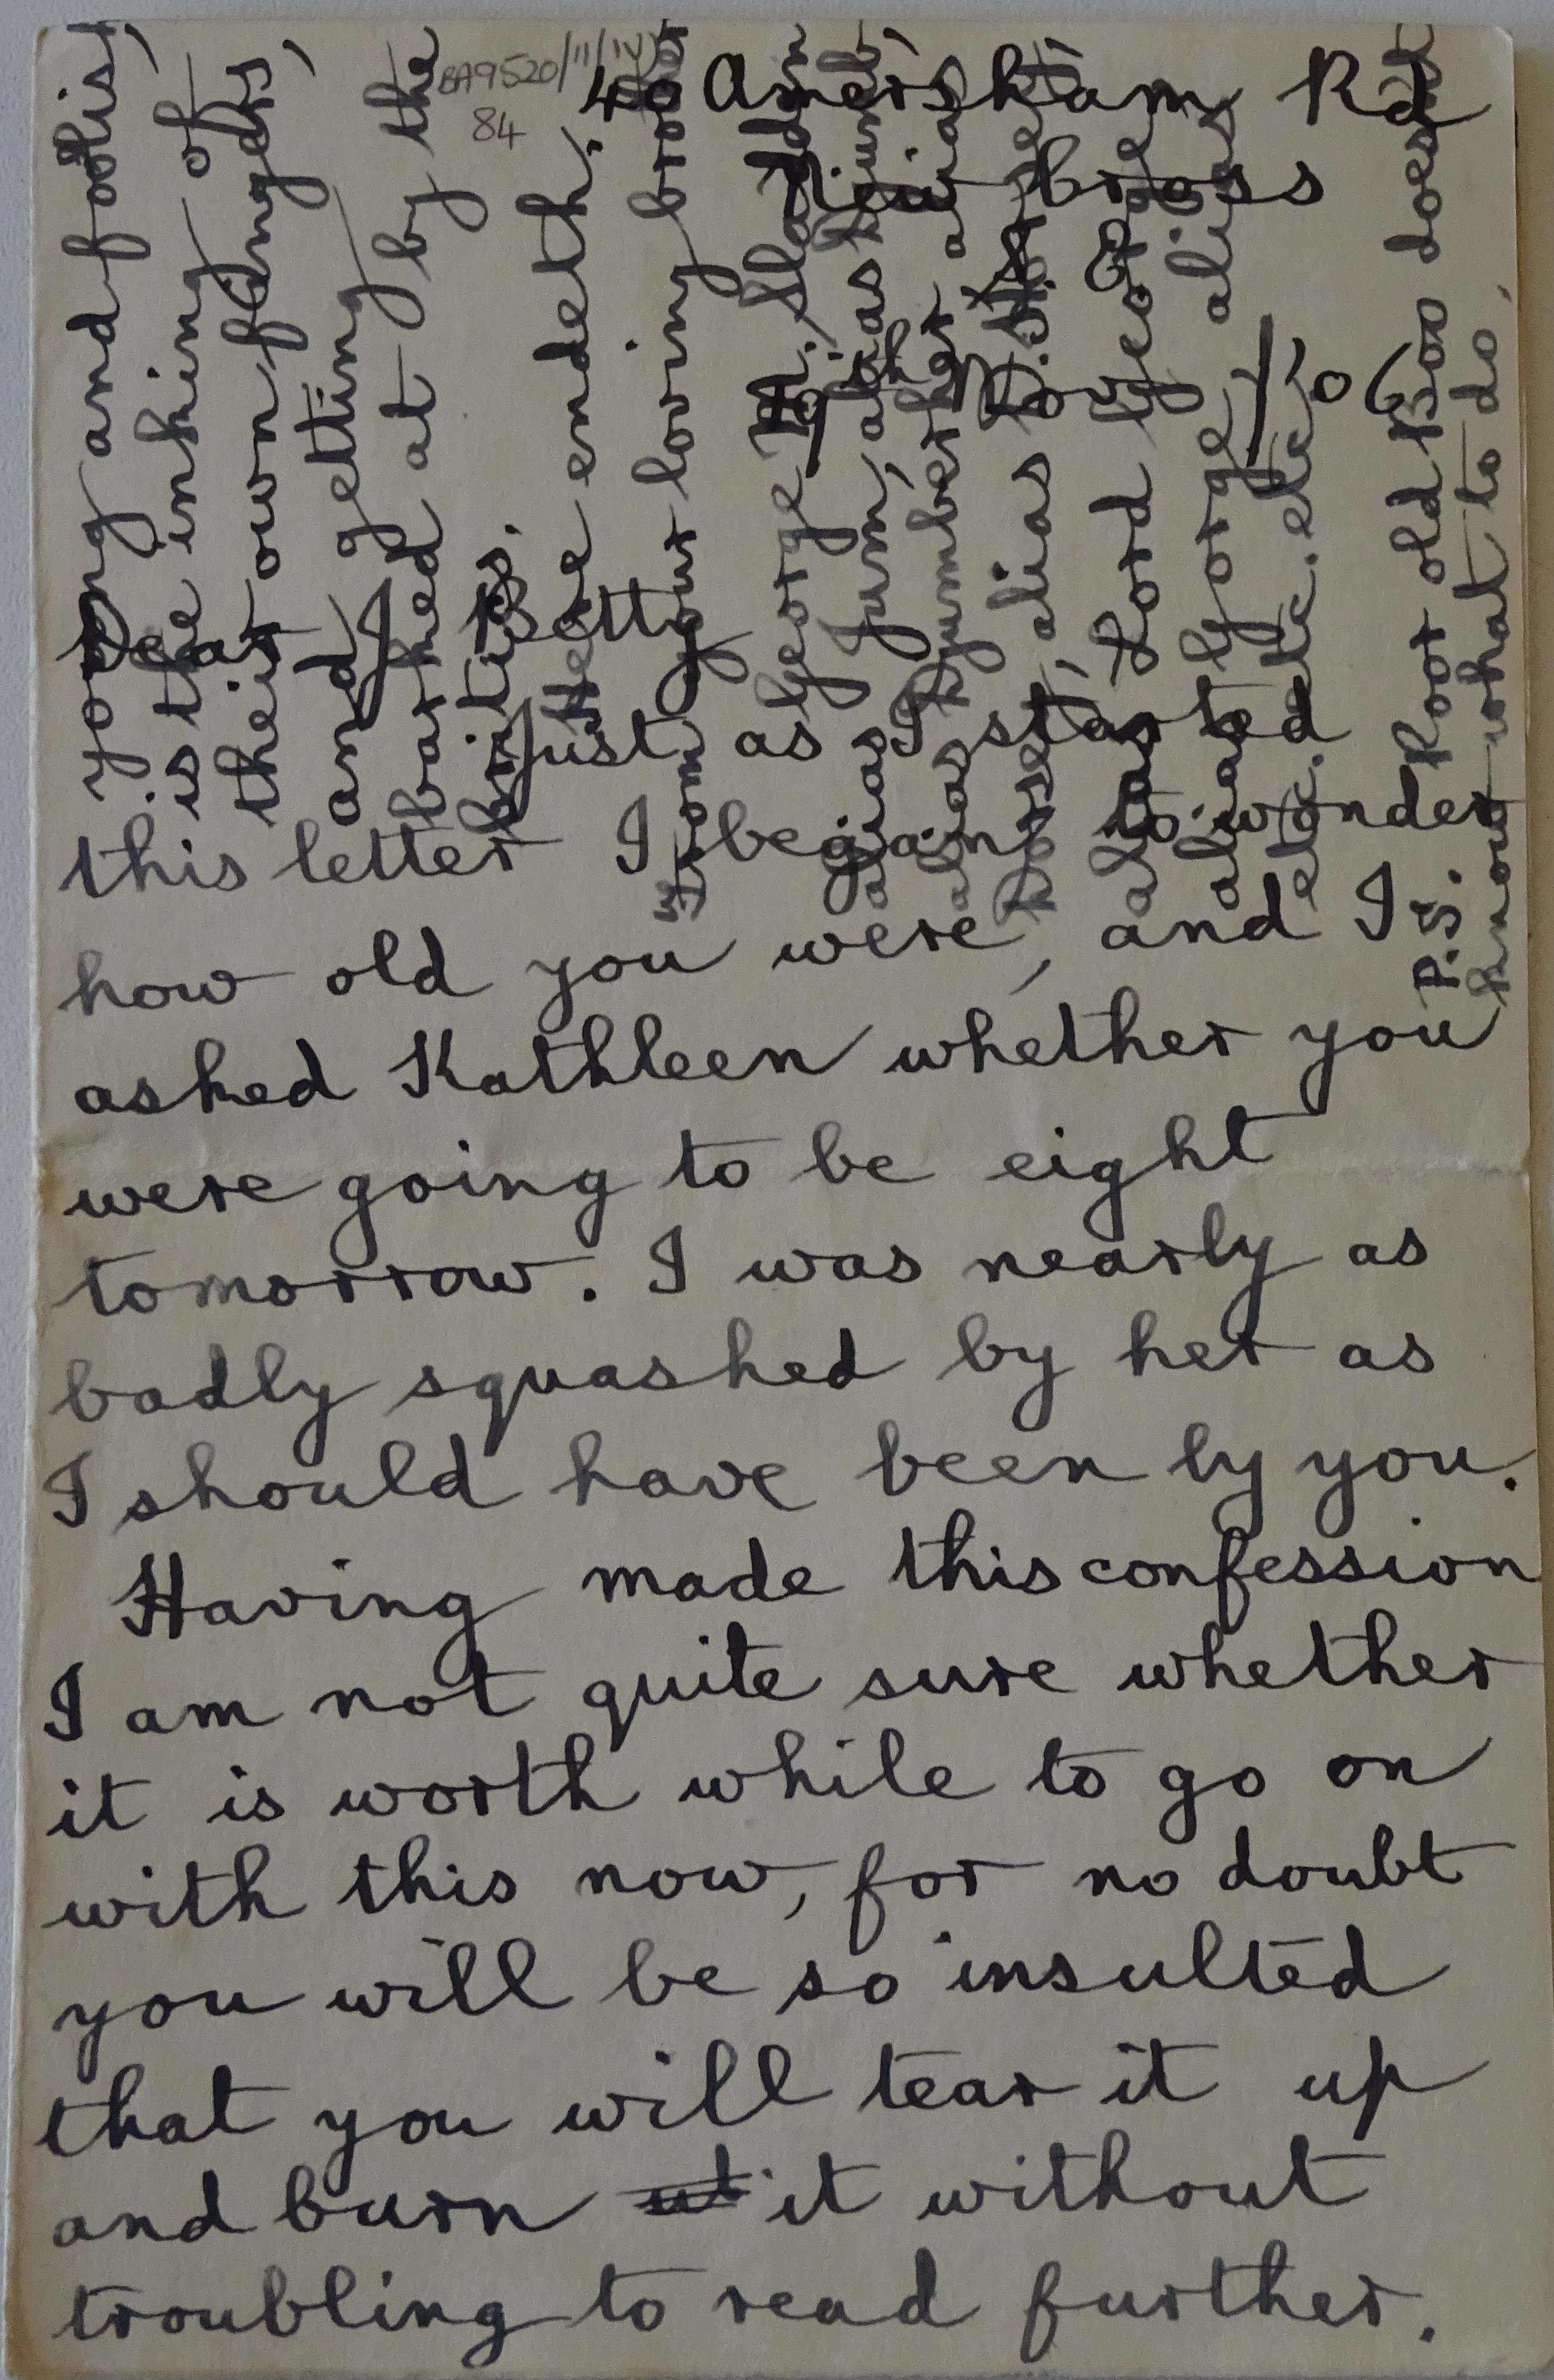 BA9520/11/(IV)
84
40 Amersham Rd
New Cross
S. E.
19th Nov /06
Dear J Betty
Just as I started
this letter I began to wonder
how old you were, and I
asked Kathleen whether you
were going to be eight
tomorrow. I was nearly as
badly squashed by her as
I should have been by you.
Having made this confession
I am not quite sure whether
it is worth while to go on
with this now, for no doubt
you will be so insulted
that you will tear it up
and burn it without
troubling to read further.
young and foolish,
is the inking of
their own fingers,
and getting
barked at by the
bitties.
Here endeth.
From your loving brother
George M. Sladden
alias Jum, alias
alias Jumberher
alias
alias Lord George
alias George alias
etc. etc. etc. etc.
P.S. Poor old Boo doesnt
know what to do.